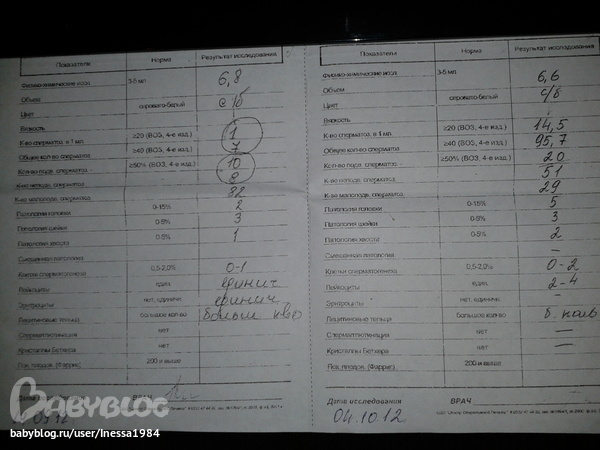 Показатели Норма Результат исследования
Физико-химические иссл. 3-5 мл
Объем 6,8
Цвет серовато-белый с/б
Вязкость
К-во сперматоз. в 1 мл. ≥20 (ВОЗ, 4-е изд.) 1
Общее кол-во сперматоз. ≥40 (ВОЗ, 4-е изд.) 7
Кол-во подв. сперматоз. ≥50% (ВОЗ, 4-е изд.) 10
К-во неподв. сперматоз. 8
К-во малоподв. сперматоз. 82
Патология головки 0-15% 2
Патология шейки 0-5% 3
Патология хвоста 0-5% 1
Смешанная патология
Клетки сперматогенеза 0,5-2,0% 0-1
Лейкоциты един. единич
Эритроциты нет, единичн. единич.
Лецитиновые тельца большое кол-во больш к-во
Спермагглютинация нет
Кристаллы Бетхера нет
Пок. плодов. (Фаррис) 200 и выше
ВРАЧ
Показатели Норма Результат исследования
Физико-химические иссл. 3-5 мл
Объем 6,6
Цвет серовато-белый с/б
Вязкость
К-во сперматоз. в 1 мл. ≥20 (ВОЗ, 4-е изд.) 14,5
Общее кол-во сперматоз. ≥40 (ВОЗ, 4-е изд.) 95,7
Кол-во подв. сперматоз. ≥50% (ВОЗ, 4-е изд.) 20
К-во неподв. сперматоз. 51
К-во малоподв. сперматоз. 29
Патология головки 0-15% 5
Патология шейки 0-5% 3
Патология хвоста 0-5% 2
Смешанная патология —
Клетки сперматогенеза 0,5-2,0% 0-2
Лейкоциты един. 2-4
Эритроциты нет, единичн. —
Лецитиновые тельца большое кол-во б. коль
Спермагглютинация нет —
Кристаллы Бетхера нет —
Пок. плодов. (Фаррис) 200 и выше
Дата исследования ВРАЧ
04.10.12
BABYBLOG
babyblog.ru/user/Inessa1984